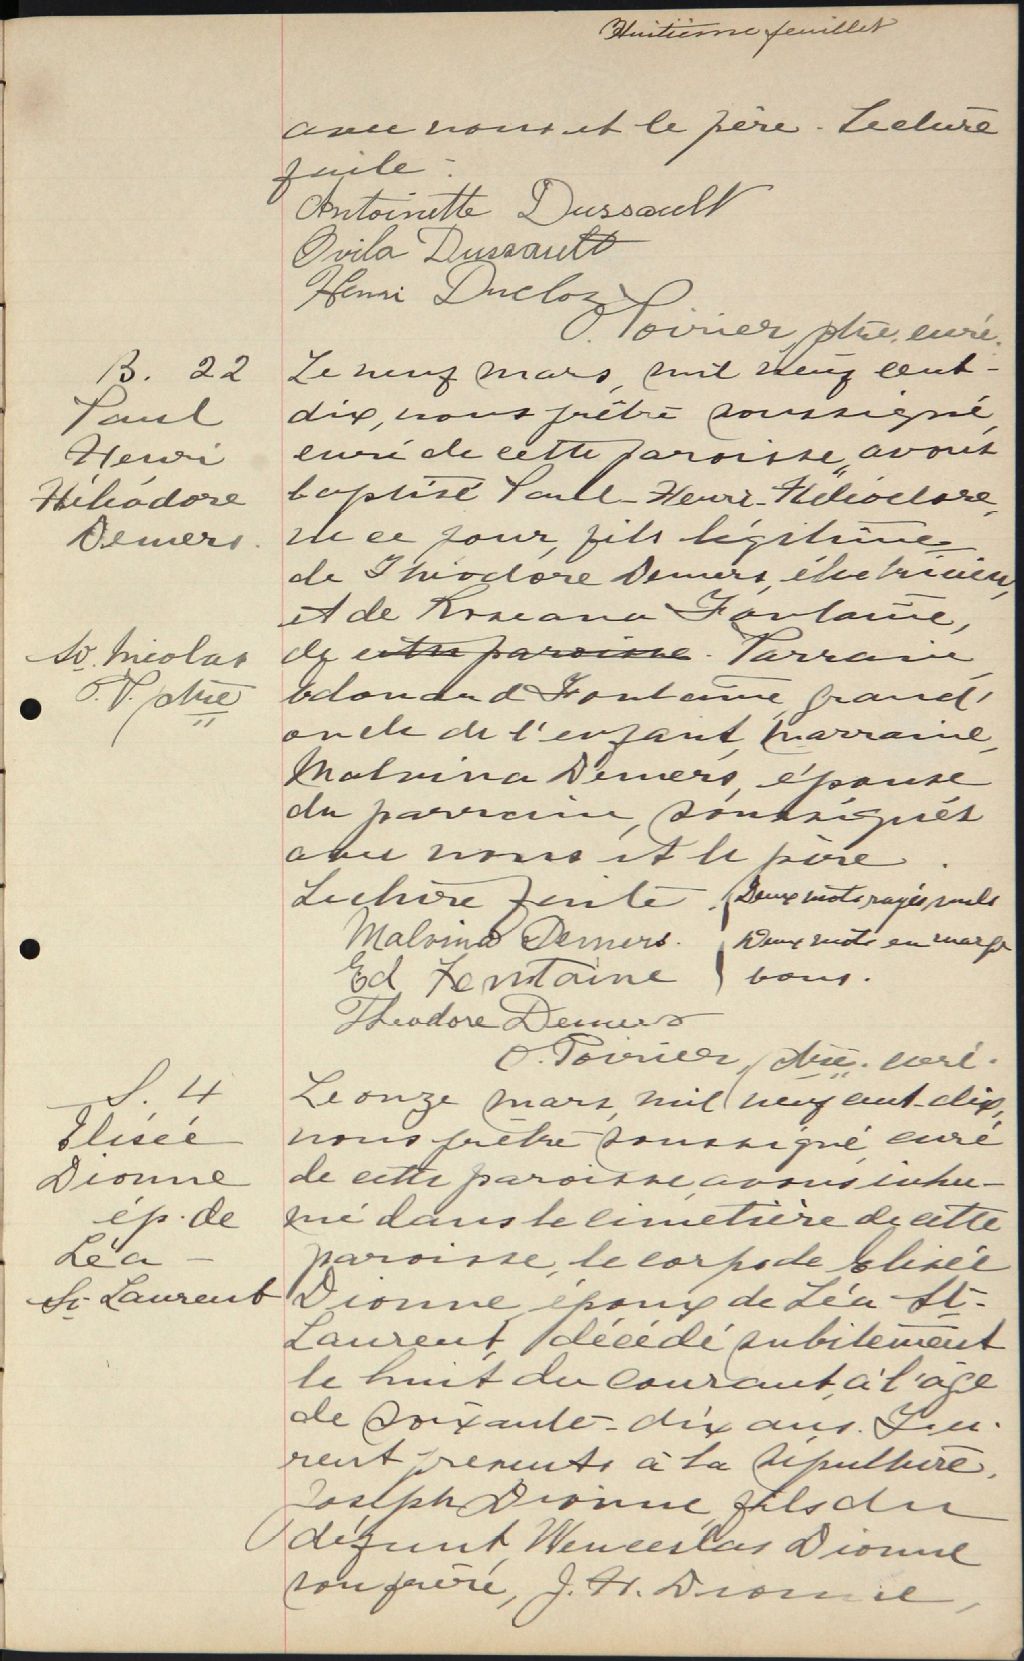 Huitième feuillet
avec nous et le père. Lecture
faite.
Antoinette Dussault
Ovila Dussault
Henri Duclos
O. Poirier, ptre, curé.
B. 22
Paul
Henri
Héliodore
Demers.
Le neuf mars, mil neuf cent-
dix, nous prêtre soussigné,
curé de cette paroisse, avons
baptisé Paul-Henri-Héliodore,
né ce jour, fils légitime
de Théodore Demers, électricien,
et de Roseanna Fontaine,
St. Nicolas
O.P. ptre
de cette paroisse. Parrain,
Edouard Fontaine, grand'
oncle de l'enfant, marraine,
Malvina Demers, épouse
du parrain, soussignés
avec nous et le père.
Lecture faite.
Deux mots rayés nuls
Deux mots en marge
bons.
Malvina Demers.
Ed Fontaine
Théodore Demers
O. Poirier, ptre. curé.
S. 4
Elisée
Dionne
ép. de
Léa
St-Laurent
Le onze mars, mil neuf cent-dix,
nous prêtre soussigné, curé
de cette paroisse, avons inhu-
mé dans le cimetière de cette
paroisse, le corps de Elisée
Dionne, époux de Léa St-
Laurent, décédé subitement
le huit du courant, à l'âge
de soixante-dix ans. Fu-
rent présents à la sépulture,
Joseph Dionne, fils du
défunt, Wenceslas Dionne
son frère, J. H. Dionne,